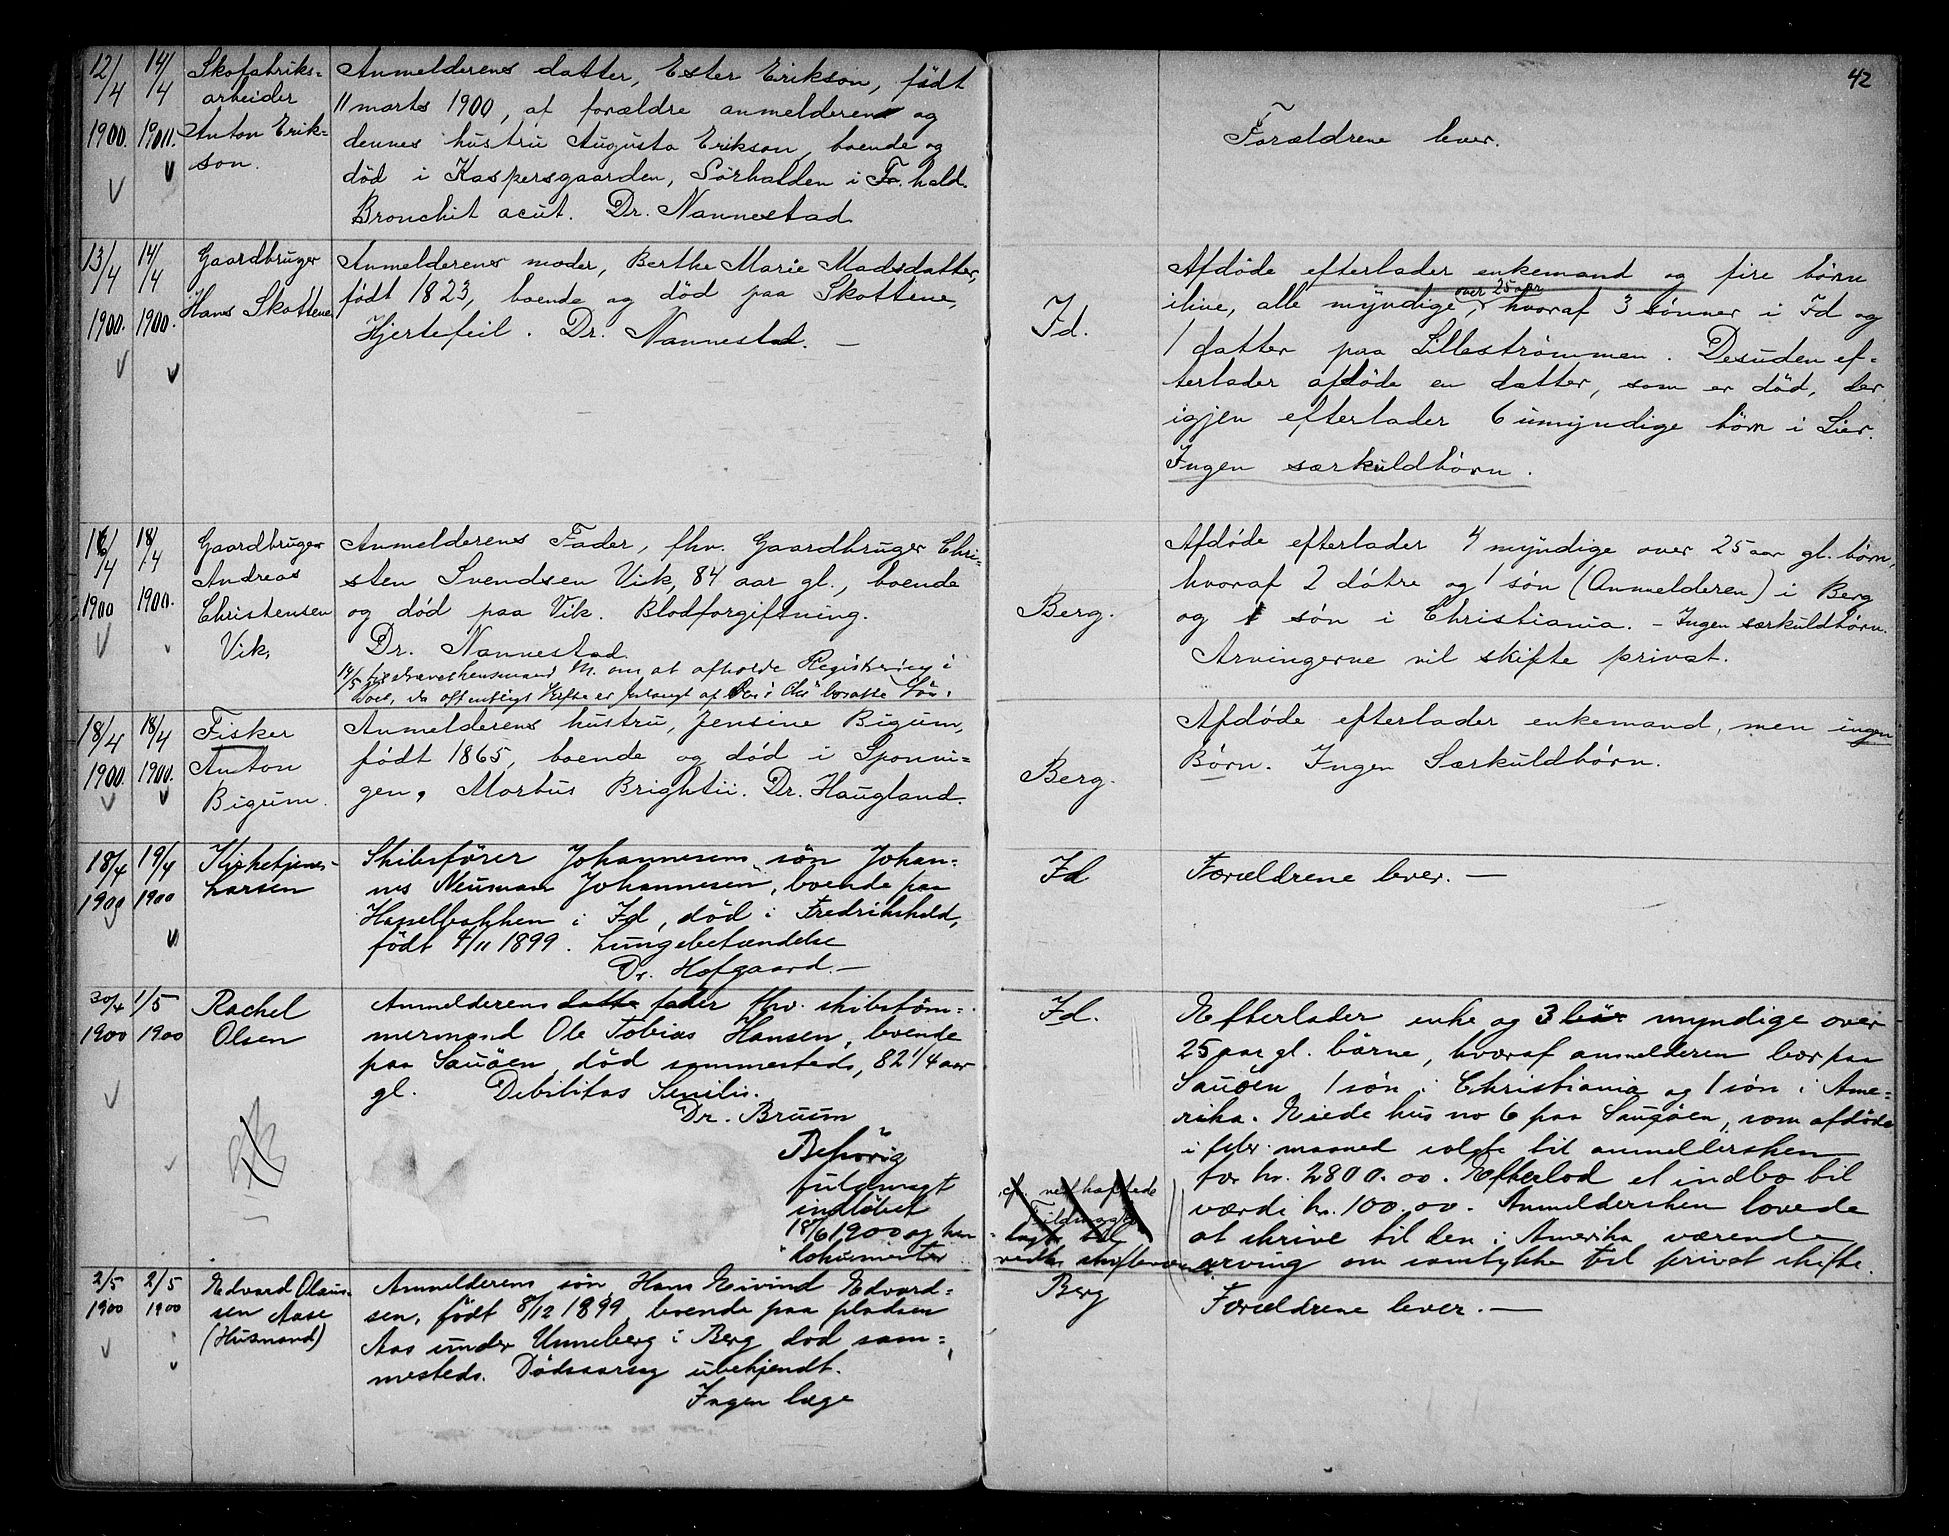 42
12/4 1900. 14/4 1900.
Skofabriks=
arbeider
Anton Erik=
son.
Anmelderens datter, Ester Erikson, født
11 marts 1900, af forældre anmelderen og
dennes hustru Augusta Erikson, boende og
død i Kaspersgaarden, Sörhalden i Fr.hald.
Bronchit acut. Dr. Nannestad
Forældrene lever.
13/4 1900. 14/4 1900.
Gaardbruger
Hans Skottene
Anmelderens moder, Berthe Marie Madsdatter,
født 1823, boende og død paa Skottene,
Hjertefeil. Dr. Nannestad. —
Id.
Afdöde efterlader enkemand og fire börn
ilive, alle myndige, over 25 aar hvoraf 3 sönner i Id og
1 datter paa Lilleströmmen. Desuden ef=
terlader afdöde en datter, som er död, der
igjen efterlader 6 umyndige börn i Lier.
Ingen særkuldbörn.
16/4 1900 18/4 1900.
Gaardbruger
Andreas
Christensen
Vik,
Anmelderens Fader, fhv. Gaardbruger Chri=
sten Svendsen Vik, 84 aar gl., boende
og død paa Vik. Blodforgiftning.
Dr. Nannestad
14/5 M. om at afholde Registrering i
Boet, da offentligt Skifte er forlangt af
Berg.
Afdöde efterlader 4 myndige over 25 aar gl. börn,
hvoraf 2 dötre og 1 sön (Anmelderen) i Berg
og 1 sön i Christiania. – Ingen særkuldbörn.
Arvingerne vil skifte privat.
18/4 1900. 18/4 1900.
Fisker
Anton
Bigum.
Anmelderens hustru, Jensine Bigum,
født 1865, boende og död i Sponvi=
gen, Morbus Brightii. Dr. Haugland.
Berg.
Afdöde efterlader enkemand, men ingen
Börn. Ingen Særkuldbörn.
18/4 1900 19/4 1900
Kirketjener
Larsen
Skibsförer Johannesens sön Johan=
nes Neuman Johannesen, boende paa
Hasselbakken i Id, död i Fredrikshald,
født 4/11 1899. Lungebetændelse
Dr. Hofgaard. —
Id
Forældrene lever. —
30/4 1900 1/5 1900
Rachel
Olsen
Anmelderens datter fader fhv. skibstöm=
mermand Ole Tobias Hansen, boende
paa Sauöen, död sammesteds, 82 1/4 aar
gl. Debilitas Senilis.
Dr. Bruun
Behörig
fuldmagt
indlöbet
18/6 1900 og
dokumenter
Id.
cfr. vedhæftede
Fildmagt
Efterlader enke og 3 myndige over
25 aar gl. börn, hvoraf anmelderen bor paa
Sauöen, 1 sön i Christiania og 1 sön i Ame=
rika. Eiede hus no 6 paa Sauöen, som afdöde
i febr. maaned solgte til anmeldersken
for kr. 2800.00. Efterlod et indbo til
værdi kr. 100.00. Anmeldersken lovede
at skrive til den i Amerika værende
arving om samtykke til privat skifte.
2/5 1900 2/5 1900
Edvard Olaus=
sen Aase
(Husmand)
Anmelderens sön Hans Eivind Edvard=
sen, født 8/12 1899, boende paa pladsen
Aas under Unneberg i Berg död sam=
mesteds. Dödsaarsag ubekjendt.
Ingen læge
Berg
Forældrene lever. —